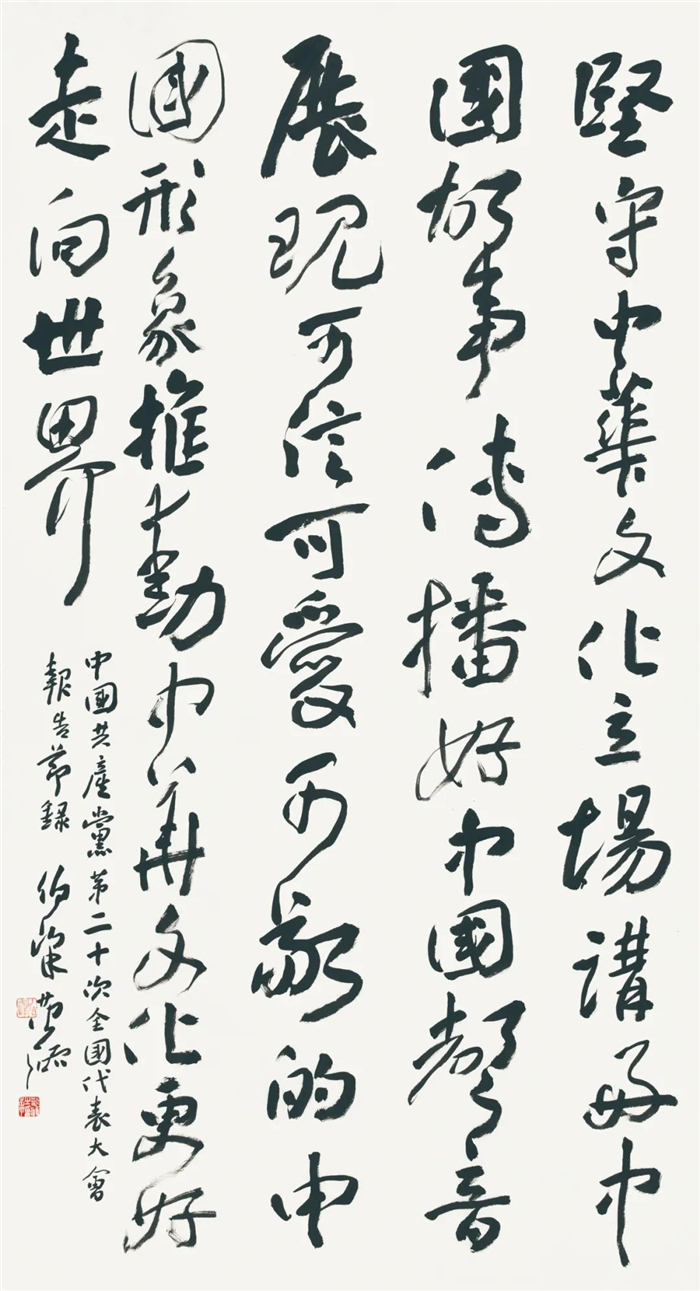 堅守中華文化立場講好中
國故事傳播好中國聲音
展現可信可愛可敬的中
國形象推動中華文化更好
走向世界
中國共產黨第二十次全國代表大會
報告節錄